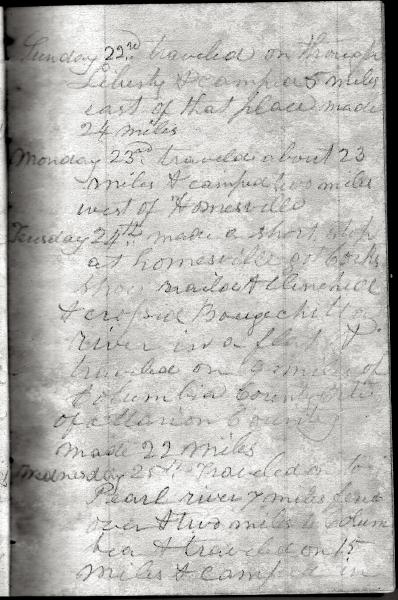 Sunday 22nd traveled on through
Liberty & camped 5 miles
east of that place made
24 miles
Monday 23rd traveled about 23
miles & camped two miles
west of Homesville
Tuesday 24th make a short stop
at homesville got
shoe nailed &
& crossed Bougechitto
river in a flat &
traveled on
Columbia County
of Marion County
made 22 miles
Wednesday 25th Traveled on to
Pearl river 7 miles
over & two miles to Colum
bia & traveled on 15
miles & camped in